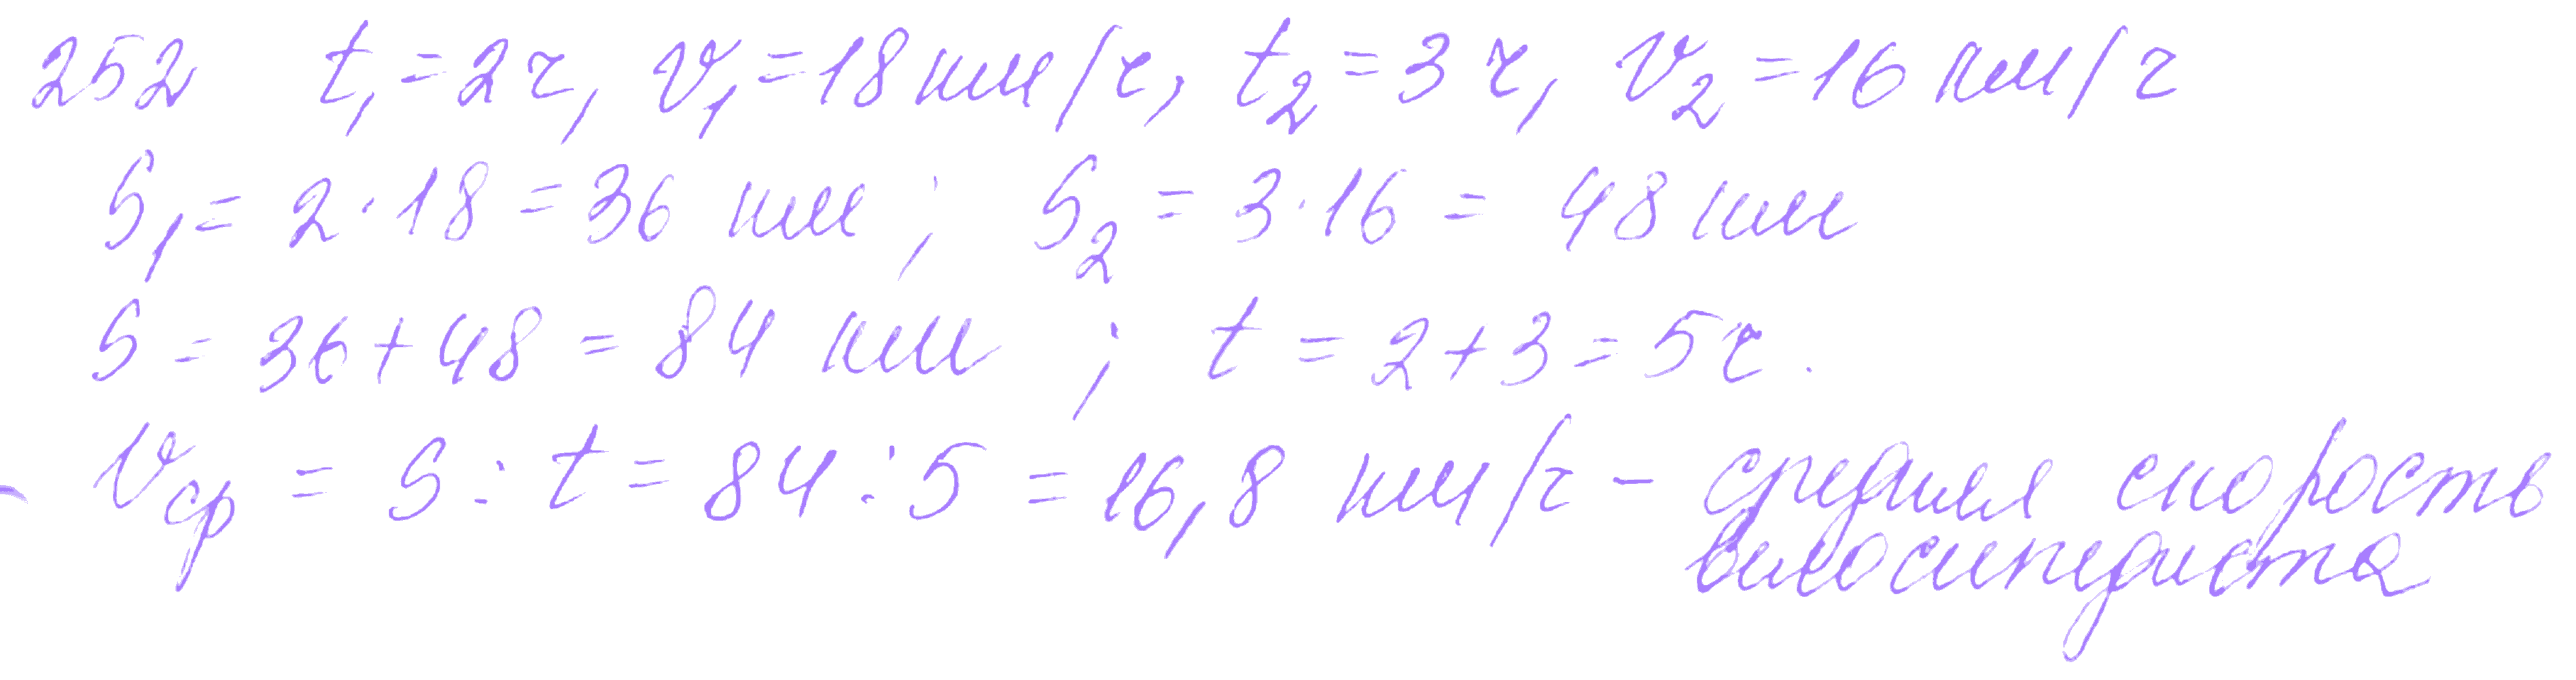 252 t₁ = 2 ч, v₁ = 18 км/ч, t₂ = 3 ч, v₂ = 16 км/ч
S₁ = 2 · 18 = 36 км ; S₂ = 3 · 16 = 48 км
S = 36 + 48 = 84 км ; t = 2 + 3 = 5 ч.
Vср = S : t = 84 : 5 = 16,8 км/ч – средняя скорость
велосипедиста